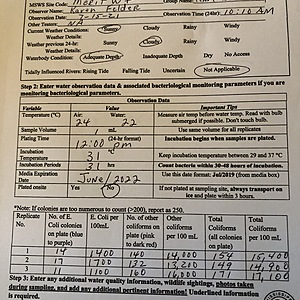 MSWS Site Code: Merit WT
Observer Name: Karen Felder
Observation Date: 7-15-21 Observation Time (24hr): 10:10 AM
Other Testers: NA
Current Weather Conditions: Sunny Cloudy Rainy Windy
Weather Details:
Weather previous 24-hr: Sunny Cloudy Rainy Windy
Weather Details:
Waterbody Condition: Adequate Depth Inadequate Depth Dry No Access
Tidally Influenced Rivers: Rising Tide Falling Tide Uncertain Not Applicable
Step 2: Enter water observation data & associated bacteriological monitoring parameters if you are
monitoring bacteriological parameters.
Observation Data
Variable Value/Data Important Tips
Temperature (°C) Air: 24 Water: 22 Measure air temp before water temp. Read with bulb
submerged if possible. Don't touch bulb.
Sample Volume 1 mL Use same volume for all replicates
Plating Time (24-hr format) 12:00 pm Incubation begins when samples are plated.
Incubation Temperature 31 Keep incubation temperature between 29 and 37 °C
Incubation Periods 31 hrs Count bacteria within 30-48 hours of incubation
Media Expiration Date June/2022 Use this date format: Jul/2019 (from media box)
Plated onsite Yes No If not plated at sampling site, always transport on
ice and plate within 3 hours.
*Note: If colonies are too numerous to count (>200), report as 250.
Replicate No. N of E. Coli colonies on plate (blue to purple) E. Coli per 100mL No. of other coliforms on plate (pink to dark red) Other coliforms per 100 mL Total Coliforms Total Coliforms per 100 mL
1 14 1400 140 14,000 154 15,400
2 17 1700 132 13,200 149 14,900
1100 160 16,000 171 17,100
Step 3: Enter any additional water quality information, wildlife sightings, photos taken
during sampling, and add any additional pertinent information! Underlined information
is required.